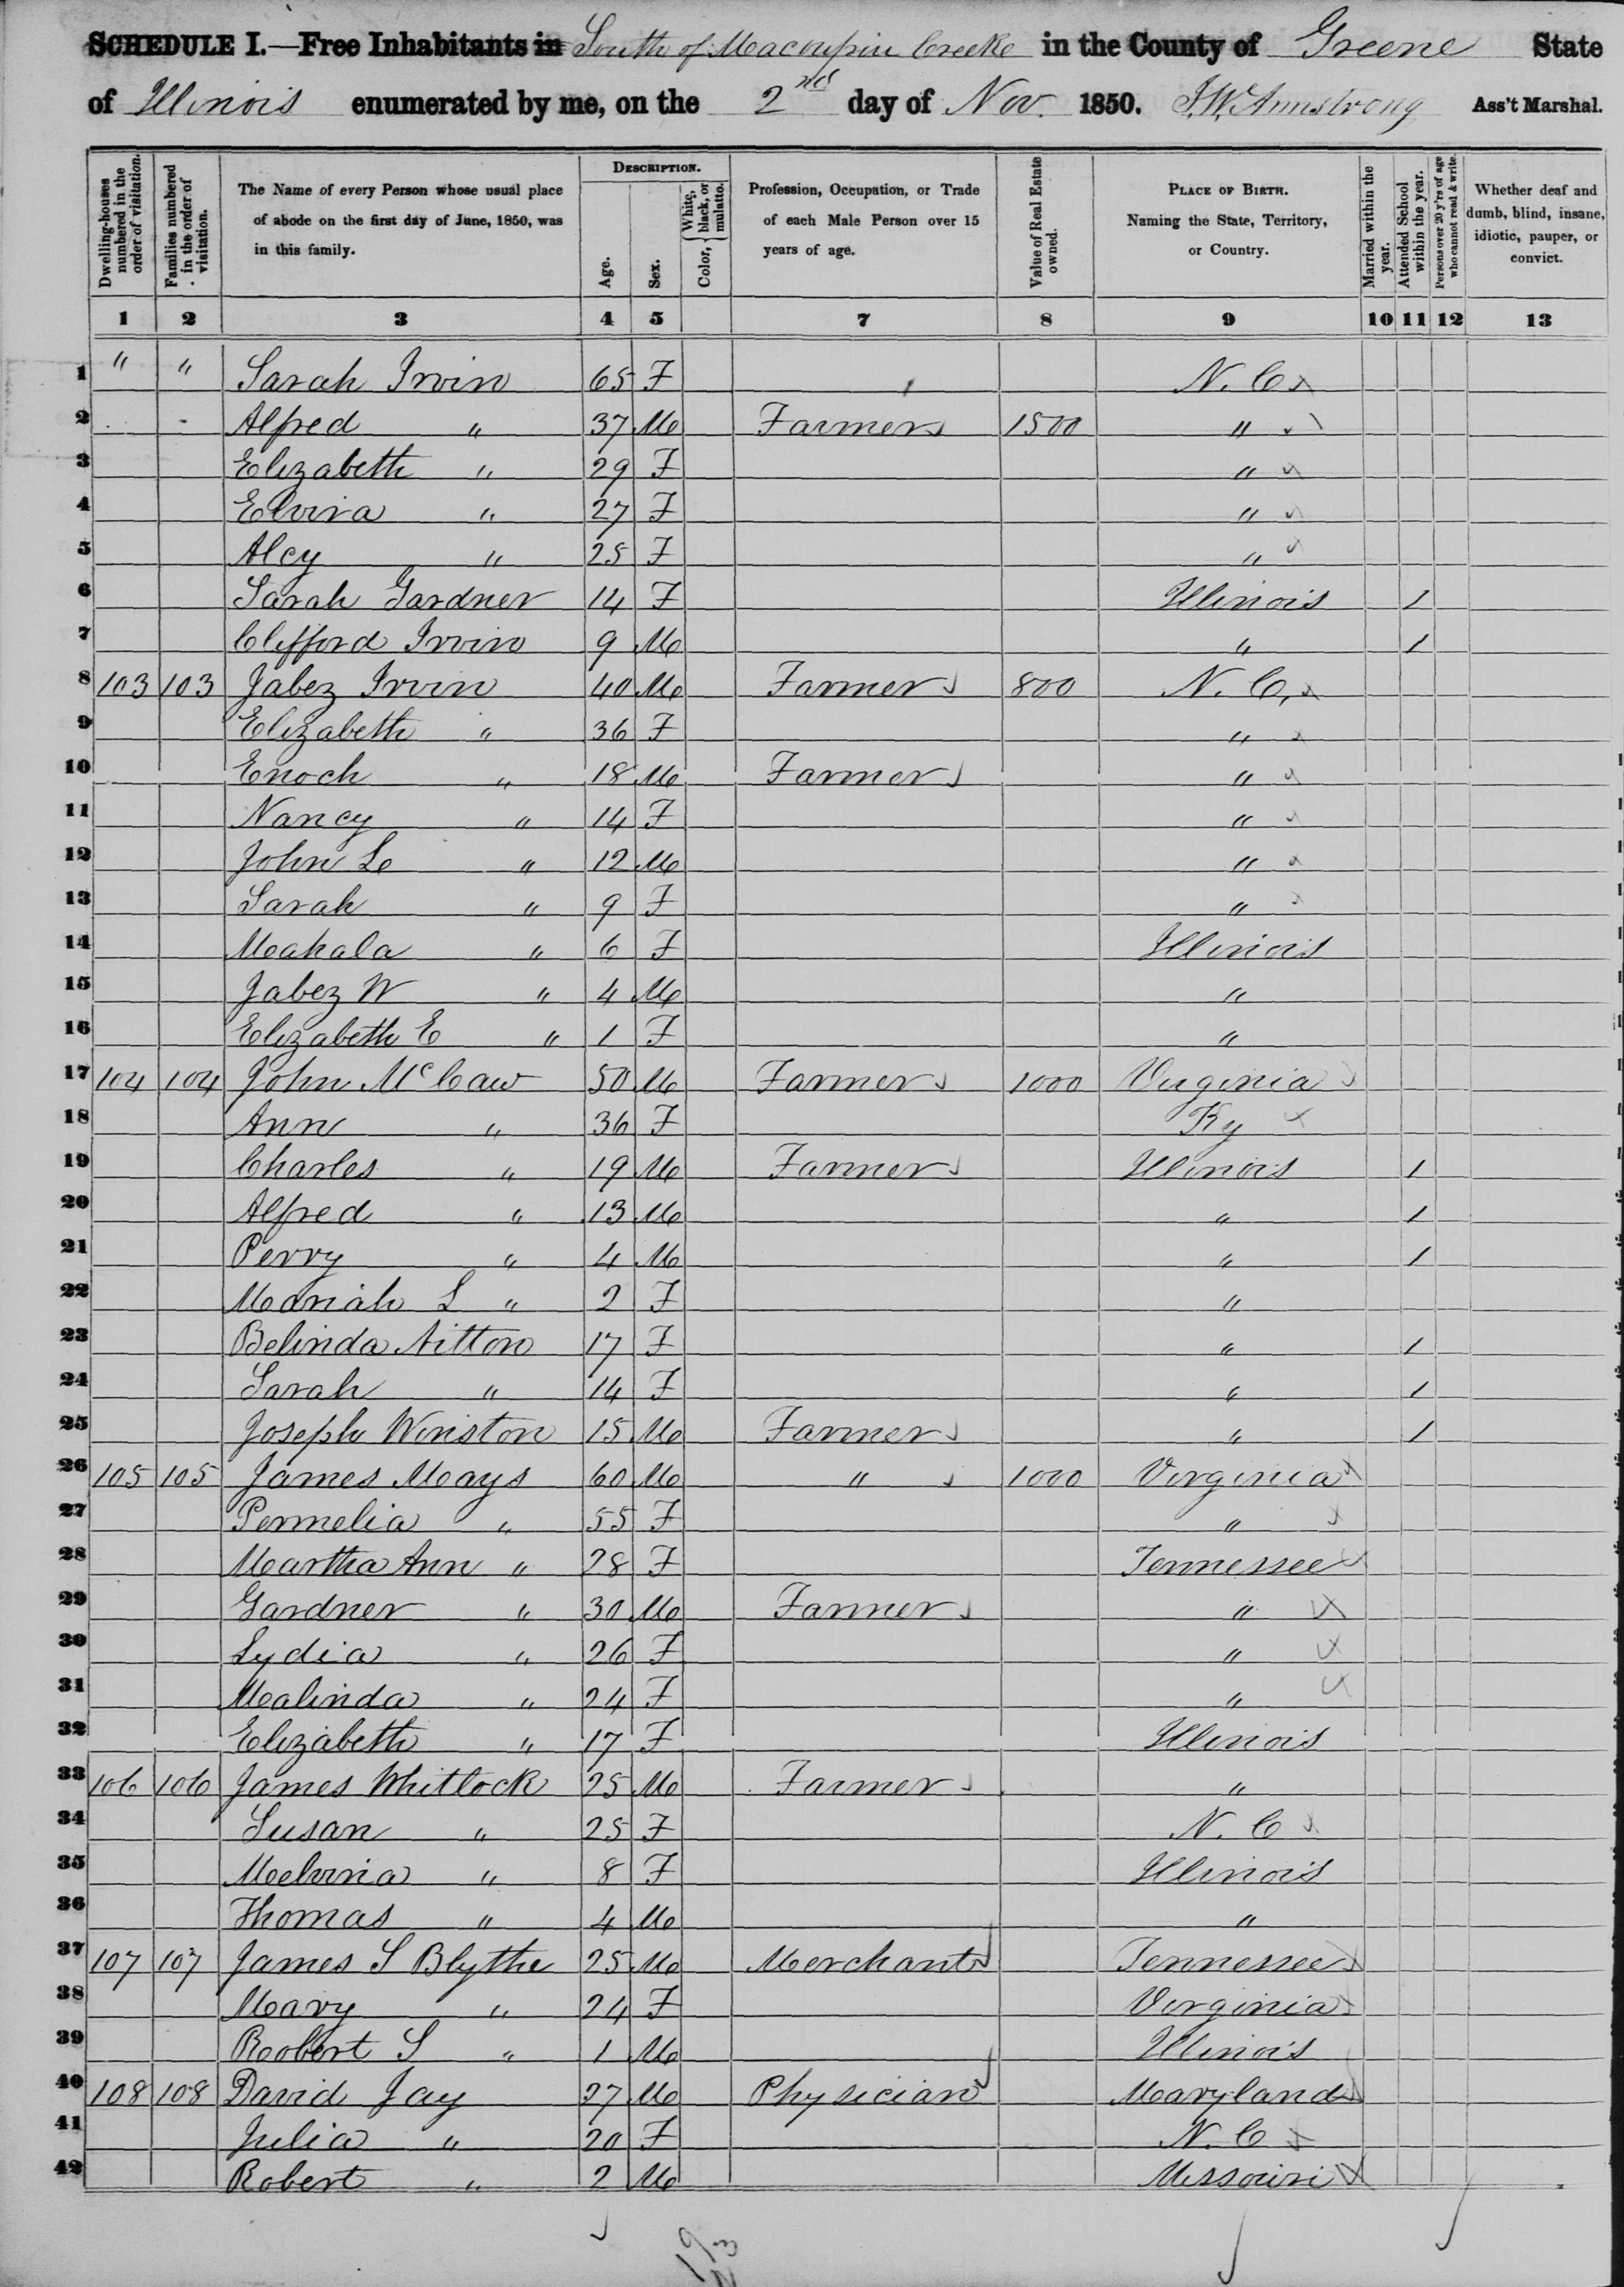 SCHEDULE I.—Free Inhabitants in South of Macoupin Creek in the County of Greene State
of Illinois enumerated by me, on the 2nd day of Nov. 1850. J. W. Armstrong Ass't Marshal.
Dwelling-houses numbered in the order of visitation. Families numbered in the order of visitation. The Name of every Person whose usual place of abode on the first day of June, 1850, was in this family. DESCRIPTION. Age. Sex. Color, White, black, or mulatto. Profession, Occupation, or Trade of each Male Person over 15 years of age. Value of Real Estate owned. PLACE OF BIRTH. Naming the State, Territory, or Country. Married within the year. Attended School within the year. Persons over 20 y'rs of age who cannot read & write. Whether deaf and dumb, blind, insane, idiotic, pauper, or convict.
1 2 3 4 5 7 8 9 10 11 12 13
1 " " Sarah Irvin 65 F N. C.
2 Alfred " 37 M Farmer 1500 "
3 Elizabeth " 29 F "
4 Elvira " 27 F "
5 Alcy " 25 F "
6 Sarah Gardner 14 F Illinois 1
7 Clifford Irvin 9 M " 1
8 103 103 Jabez Irvin 40 M Farmer 800 N. C.
9 Elizabeth " 36 F "
10 Enoch " 18 M Farmer "
11 Nancy " 14 F "
12 John L " 12 M "
13 Sarah " 9 F "
14 Mahala " 6 F Illinois
15 Jabez W " 4 M "
16 Elizabeth E " 1 F "
17 104 104 John McCaw 50 M Farmer 1000 Virginia
18 Ann " 36 F Ky
19 Charles " 19 M Farmer Illinois 1
20 Alfred " 13 M " 1
21 Perry " 4 M " 1
22 Mariah L " 2 F "
23 Belinda 17 F " 1
24 Sarah " 14 F " 1
25 Joseph Winston 15 M Farmer " 1
26 105 105 James Mays 60 M " 1000 Virginia
27 Permelia " 55 F "
28 Martha Ann " 28 F Tennessee
29 Gardner " 30 M Farmer "
30 Lydia " 26 F "
31 Malinda " 24 F "
32 Elizabeth " 17 F Illinois
33 106 106 James Whitlock 25 M Farmer "
34 Susan " 25 F N. C
35 Melvina " 8 F Illinois
36 Thomas " 4 M "
37 107 107 James S Blythe 25 M Merchant Tennessee
38 Mary " 24 F Virginia
39 Robert S " 1 M Illinois
40 108 108 David Jay 27 M Physician Maryland
41 Julia " 20 F N. C
42 Robert " 2 M Missouri
19
23